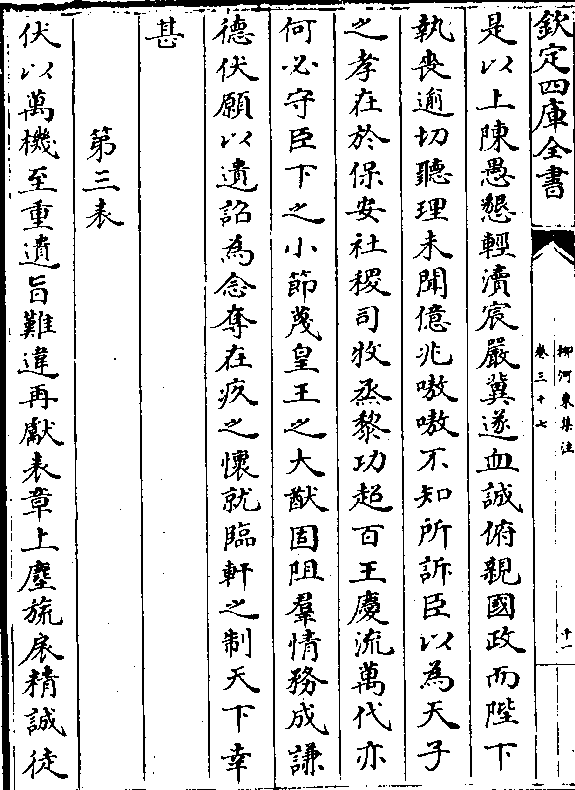 欽定四庫全書
柳河東集注
卷三十七
十一
是以上陳愚懇輕瀆宸嚴冀遂血誠俯親國政而陛下
執喪逾切聽理未聞億兆嗷嗷不知所訴臣以為天子
之孝在於保安社稷司牧烝黎功超百王慶流萬代亦
何必守臣下之小節蔑皇王之大猷固阻羣情務成謙
德伏願以遺詔為念奪在疚之懷就臨軒之制天下幸
甚
第三表
伏以萬機至重遺旨難違再獻表章上塵旒扆精誠徒